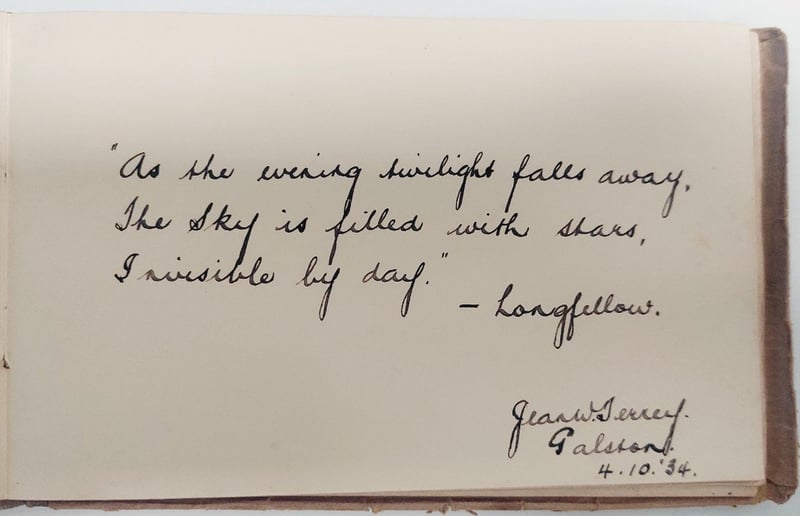 "As the evening twilight falls away,
The Sky is filled with stars,
Invisible by day."
- Longfellow.
Jean W. Terrey.
Galston.
4.10.'34.